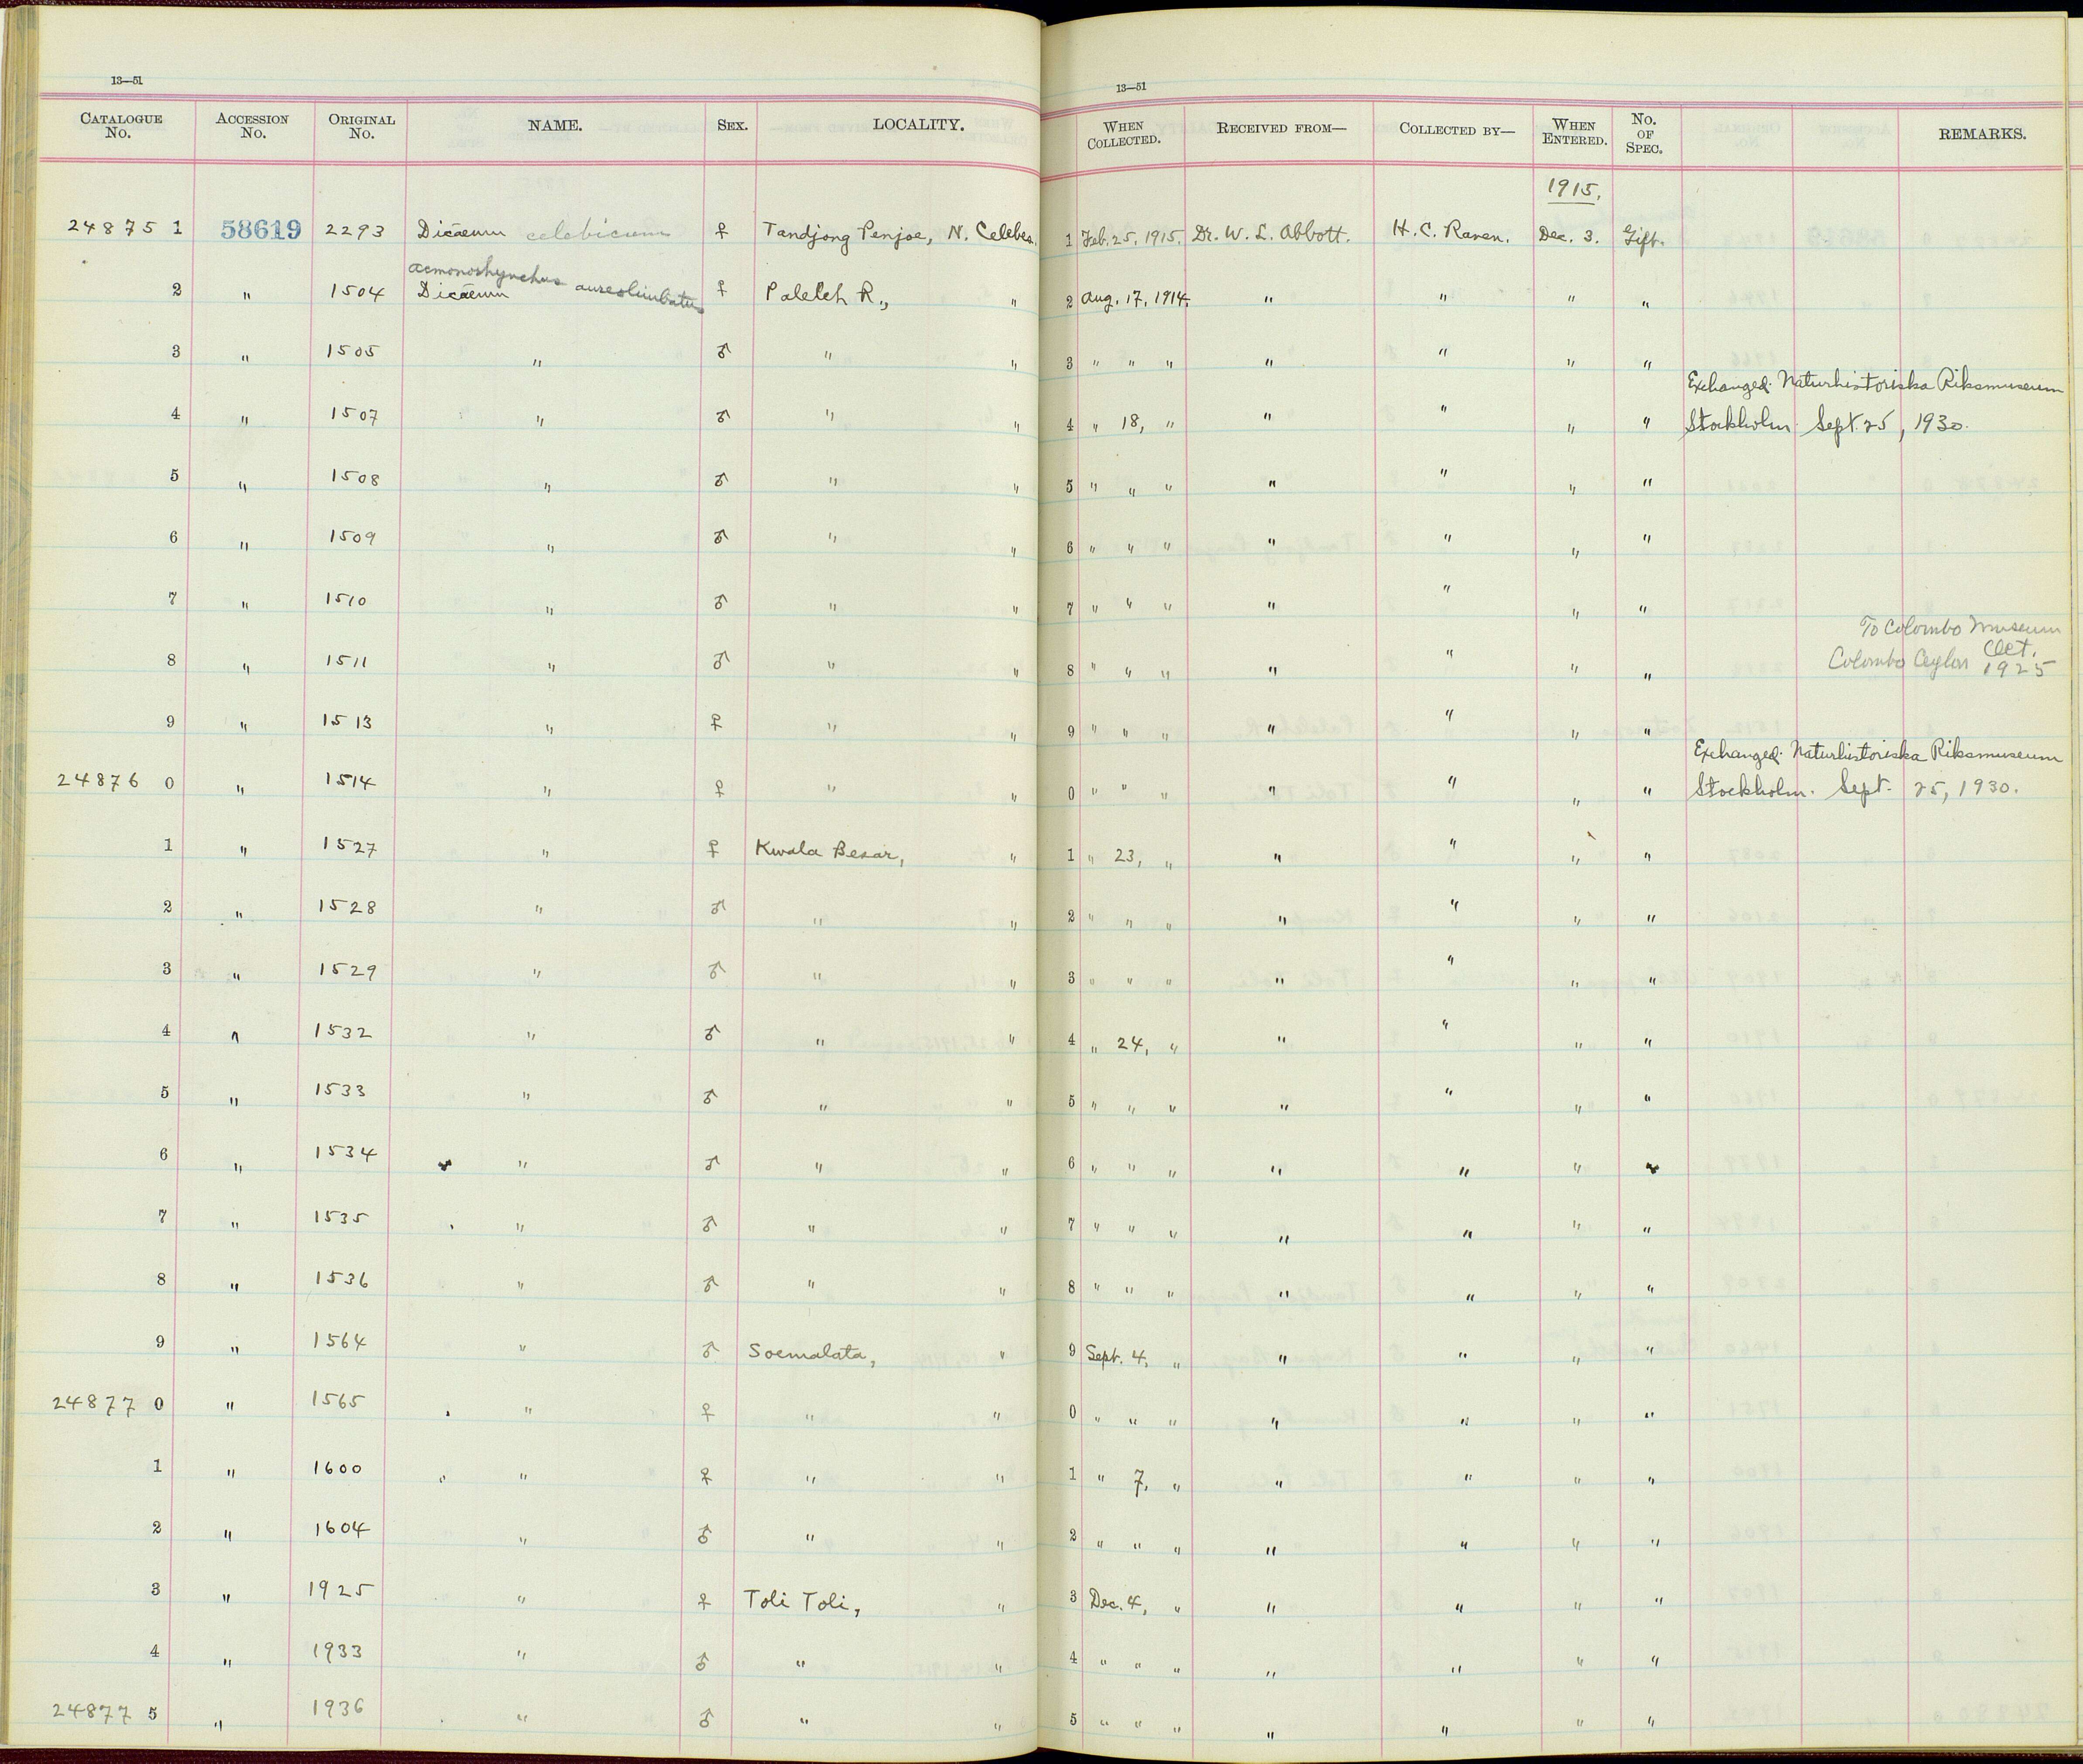 13—51
CATALOGUE No. ACCESSION No. ORIGINAL No. NAME. SEX. LOCALITY.
248751 58619 2293 Dicaeum celebicum ♀ Tandjong Penjoe, N. Celebes.
acmonorhynchus aureolimbatus
2 " 1504 Dicaeum ♀ Paleleh R., "
3 " 1505 " ♂ " "
4 " 1507 " ♂ " "
5 " 1508 " ♂ " "
6 " 1509 " ♂ " "
7 " 1510 " ♂ " "
8 " 1511 " ♂ " "
9 " 1513 " ♀ " "
248760 " 1514 " ♀ " "
1 " 1527 " ♀ Kwala Besar, "
2 " 1528 " ♂ " "
3 " 1529 " ♂ " "
4 " 1532 " ♂ " "
5 " 1533 " ♂ " "
6 " 1534 " ♂ " "
7 " 1535 " ♂ " "
8 " 1536 " ♂ " "
9 " 1564 " ♂ Soemalata, "
248770 " 1565 " ♀ " "
1 " 1600 " ♀ " "
2 " 1604 " ♂ " "
3 " 1925 " ♀ Toli Toli, "
4 " 1933 " ♂ " "
248775 " 1936 " ♂ " "
13—51
WHEN COLLECTED. RECEIVED FROM— COLLECTED BY— WHEN ENTERED. No. OF SPEC. REMARKS.
1915.
1 Feb. 25, 1915. Dr. W. L. Abbott. H. C. Raven. Dec. 3. Gift.
2 Aug. 17, 1914. " " " "
3 " " " " " " "
Exchanged Naturhistoriska Riksmuseum
4 " 18, " " " " " Stockholm Sept. 25, 1930.
5 " " " " " " "
6 " " " " " " "
7 " " " " " " "
To Colombo Museum
8 " " " " " " " Colombo Ceylon Oct. 1925
9 " " " " " " "
Exchanged Naturhistoriska Riksmuseum
0 " " " " " " " Stockholm. Sept. 25, 1930.
1 " 23, " " " " "
2 " " " " " " "
3 " " " " " " "
4 " 24, " " " " "
5 " " " " " " "
6 " " " " " " "
7 " " " " " " "
8 " " " " " " "
9 Sept. 4, " " " " "
0 " " " " " " "
1 " 7, " " " " "
2 " " " " " " "
3 Dec. 4, " " " " "
4 " " " " " " "
5 " " " " " " "